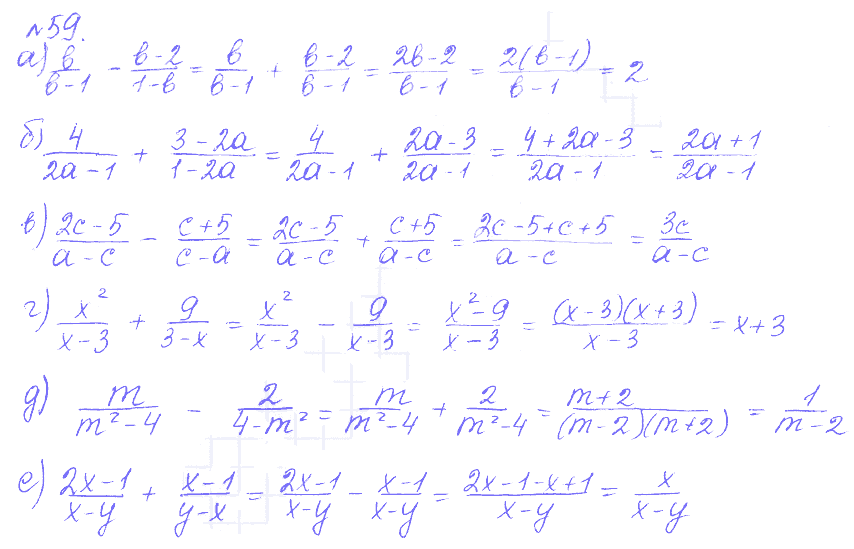 №59.
а) b/(b-1) - (b-2)/(1-b) = b/(b-1) + (b-2)/(b-1) = (2b-2)/(b-1) = 2(b-1)/(b-1) = 2
б) 4/(2a-1) + (3-2a)/(1-2a) = 4/(2a-1) + (2a-3)/(2a-1) = (4+2a-3)/(2a-1) = (2a+1)/(2a-1)
в) (2c-5)/(a-c) - (c+5)/(c-a) = (2c-5)/(a-c) + (c+5)/(a-c) = (2c-5+c+5)/(a-c) = 3c/(a-c)
г) x²/(x-3) + 9/(3-x) = x²/(x-3) - 9/(x-3) = (x²-9)/(x-3) = (x-3)(x+3)/(x-3) = x+3
д) m/(m²-4) - 2/(4-m²) = m/(m²-4) + 2/(m²-4) = (m+2)/((m-2)(m+2)) = 1/(m-2)
е) (2x-1)/(x-y) + (x-1)/(y-x) = (2x-1)/(x-y) - (x-1)/(x-y) = (2x-1-x+1)/(x-y) = x/(x-y)